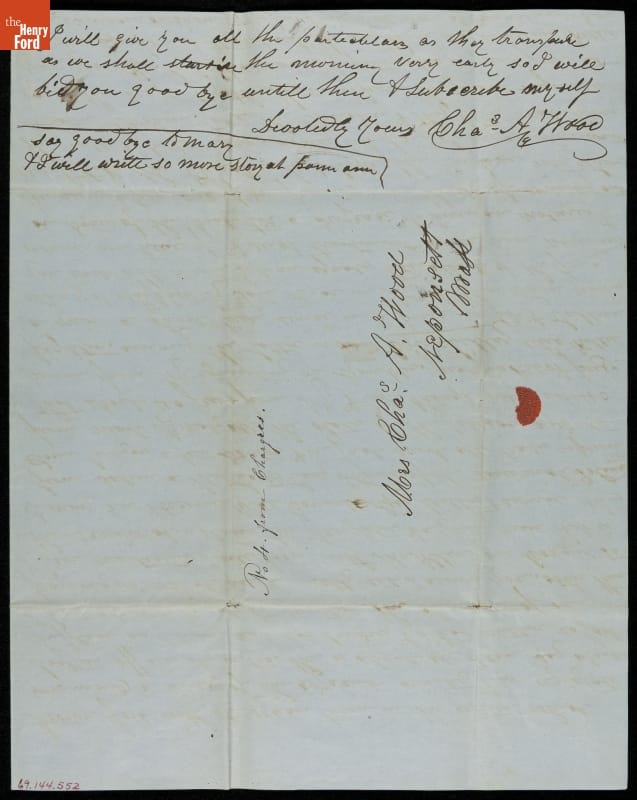 the
Henry
Ford
I will give you all the particulars as they transpire
as we shall start in the morning very early so I will
bid you good bye untill then & Subscribe myself
Devotedly Yours Chas A Wood
say good bye to mary
& I will write so more story at
Mrs Chas. A. Wood
Neponsett
Mass
No 4. from Chagres.
69.144.552